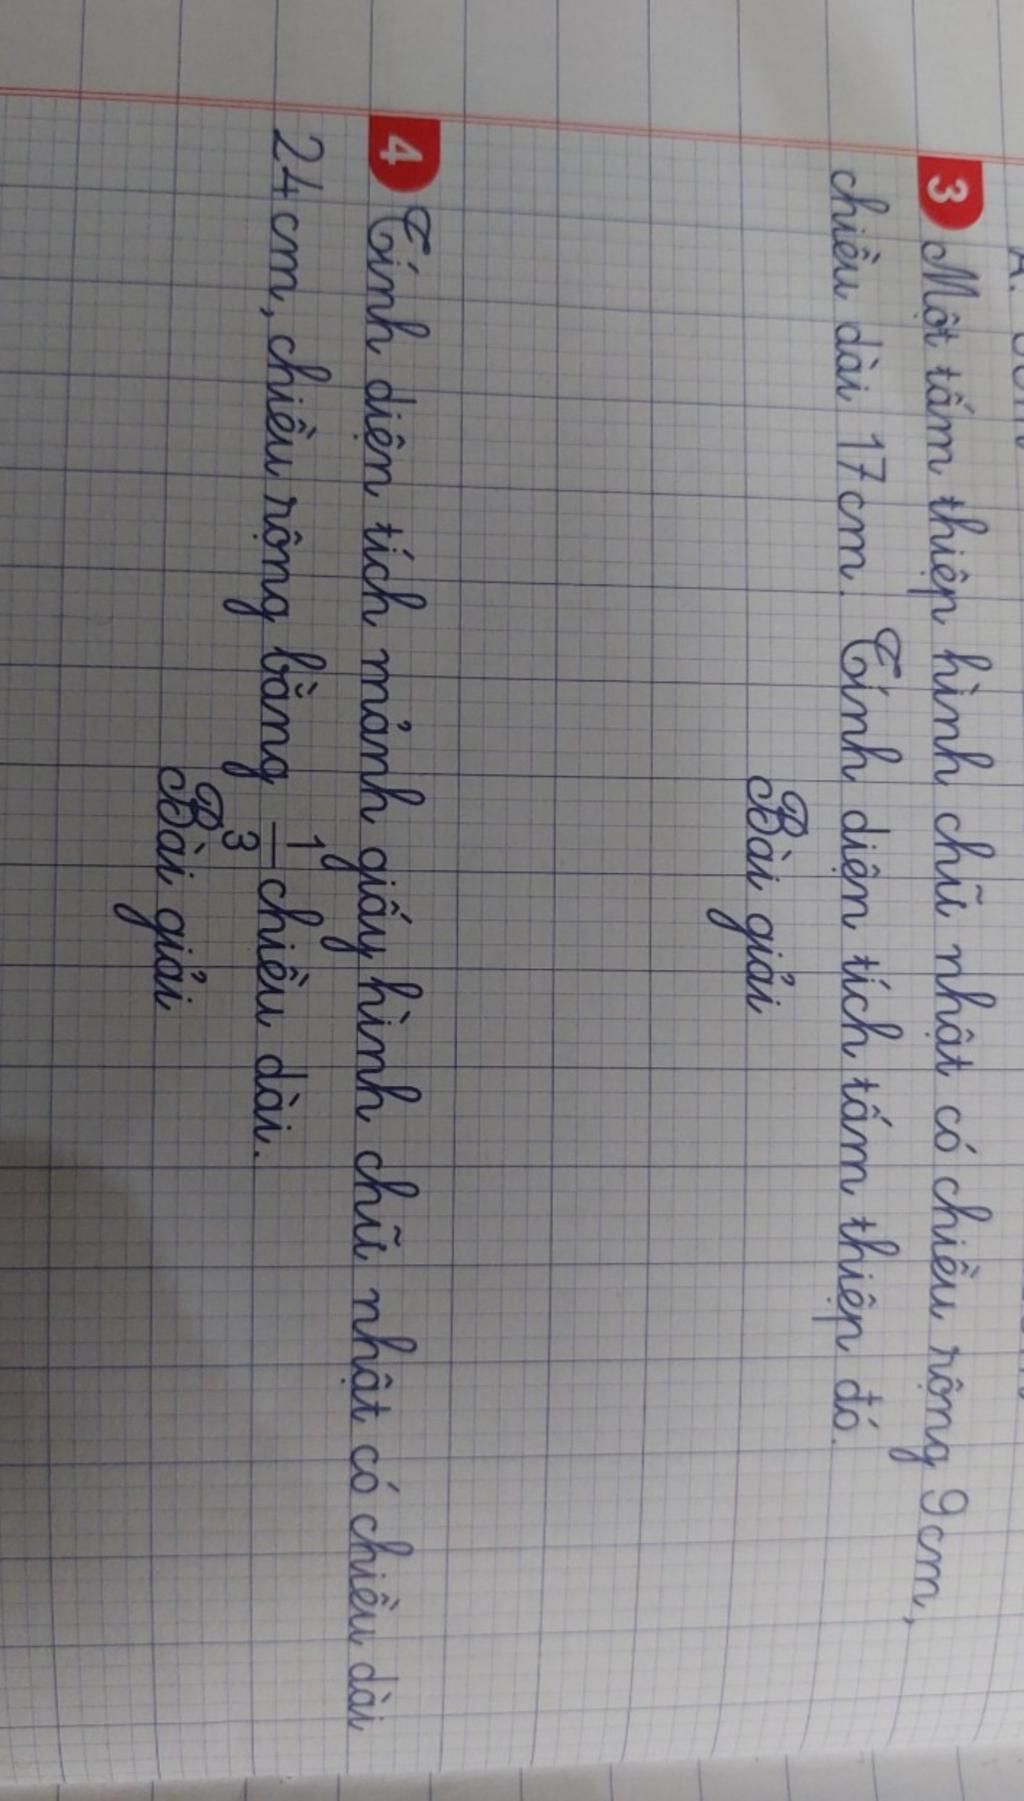 3 Một tấm thiệp hình chữ nhật có chiều rộng 9cm,
chiều dài 17cm. Tính diện tích tấm thiệp đó.
Bài giải
4 Tính diện tích mảnh giấy hình chữ nhật có chiều dài
24cm, chiều rộng bằng 1/3 chiều dài.
Bài giải